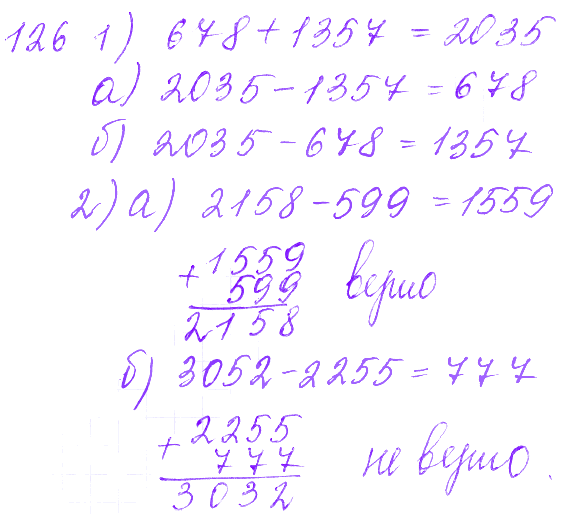 126 1) 678 + 1357 = 2035
а) 2035 - 1357 = 678
б) 2035 - 678 = 1357
2) а) 2158 - 599 = 1559
+ 1559 верно
599
2158
б) 3052 - 2255 = 777
+ 2255
777 не верно.
3032